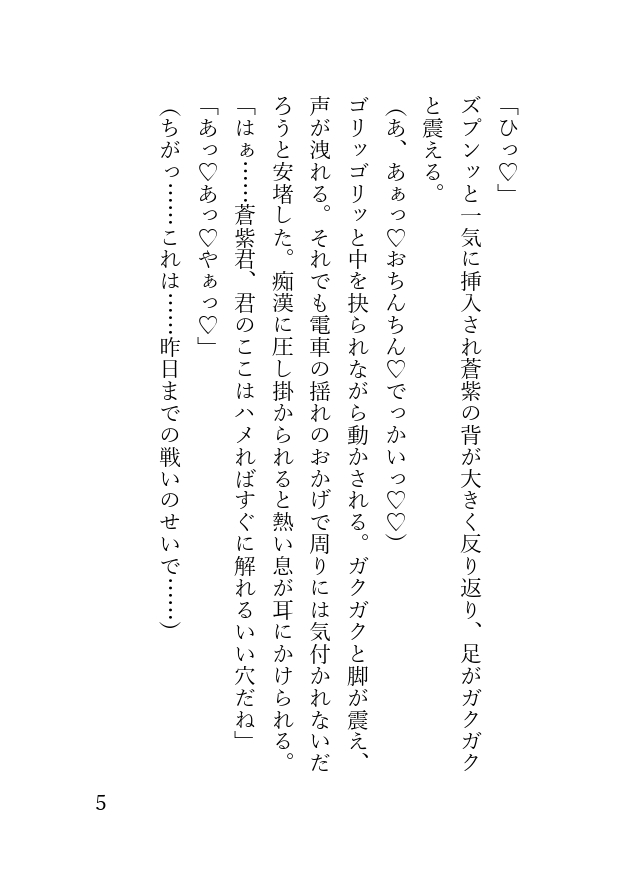 「ひっ♡」
ズプンッと一気に挿入され蒼紫の背が大きく反り返り、足がガクガク
と震える。
(あ、あぁっ♡おちんちん♡でっかいっ♡♡)
ゴリッゴリッと中を抉られながら動かされる。ガクガクと脚が震え、
声が洩れる。それでも電車の揺れのおかげで周りには気付かれないだ
ろうと安堵した。痴漢に圧し掛かられると熱い息が耳にかけられる。
「はぁ……蒼紫君、君のここはハメればすぐに解れるいい穴だね」
「あっ♡あっ♡やぁっ♡」
(ちがっ……これは……昨日までの戦いのせいで……)
5